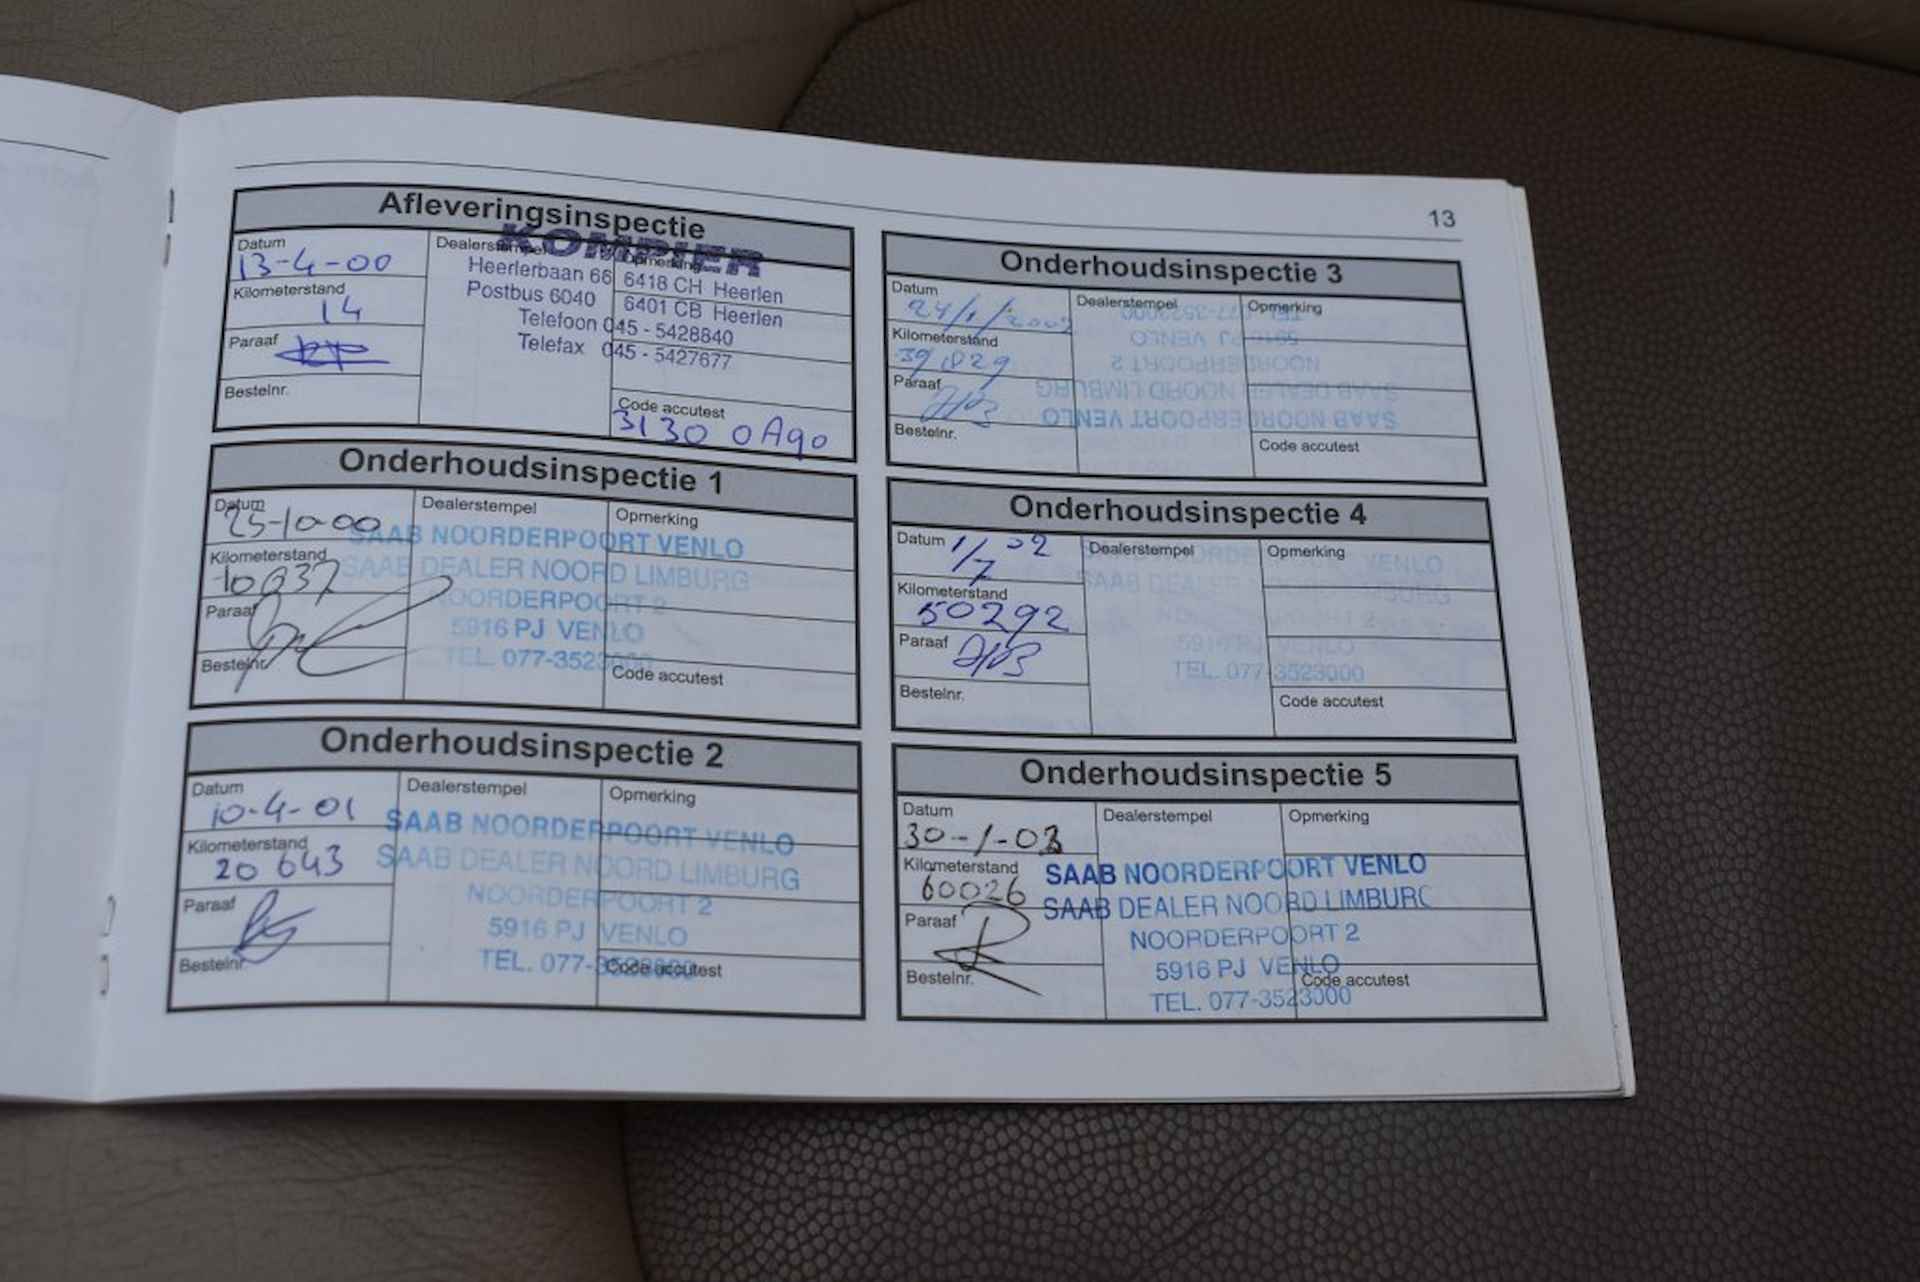 13
Afleveringsinspectie
Datum
13-4-00
Kilometerstand
14
Paraaf
Bestelnr.
Dealerstempel
Opmerking
KOMPIER
Heerlerbaan 66 6418 CH Heerlen
Postbus 6040 6401 CB Heerlen
Telefoon 045 - 5428840
Telefax 045 - 5427677
Code accutest
3130 0A90
Onderhoudsinspectie 1
Datum
25-10-00
Kilometerstand
10037
Paraaf
Bestelnr.
Dealerstempel
Opmerking
SAAB NOORDERPOORT VENLO
SAAB DEALER NOORD LIMBURG
NOORDERPOORT 2
5916 PJ VENLO
TEL. 077-3523000
Code accutest
Onderhoudsinspectie 2
Datum
10-4-01
Kilometerstand
20 643
Paraaf
Bestelnr.
Dealerstempel
Opmerking
SAAB NOORDERPOORT VENLO
SAAB DEALER NOORD LIMBURG
NOORDERPOORT 2
5916 PJ VENLO
TEL. 077-3523000
Code accutest
Onderhoudsinspectie 3
Datum
24/1/2002
Kilometerstand
39829
Paraaf
Bestelnr.
Dealerstempel
Opmerking
SAAB NOORDERPOORT VENLO
SAAB DEALER NOORD LIMBURG
NOORDERPOORT 2
5916 PJ VENLO
TEL. 077-3523000
Code accutest
Onderhoudsinspectie 4
Datum
1/7 02
Kilometerstand
50292
Paraaf
Bestelnr.
Dealerstempel
Opmerking
SAAB NOORDERPOORT VENLO
SAAB DEALER NOORD LIMBURG
NOORDERPOORT 2
5916 PJ VENLO
TEL. 077-3523000
Code accutest
Onderhoudsinspectie 5
Datum
30-1-03
Kilometerstand
60026
Paraaf
Bestelnr.
Dealerstempel
Opmerking
SAAB NOORDERPOORT VENLO
SAAB DEALER NOORD LIMBURG
NOORDERPOORT 2
5916 PJ VENLO
TEL. 077-3523000
Code accutest